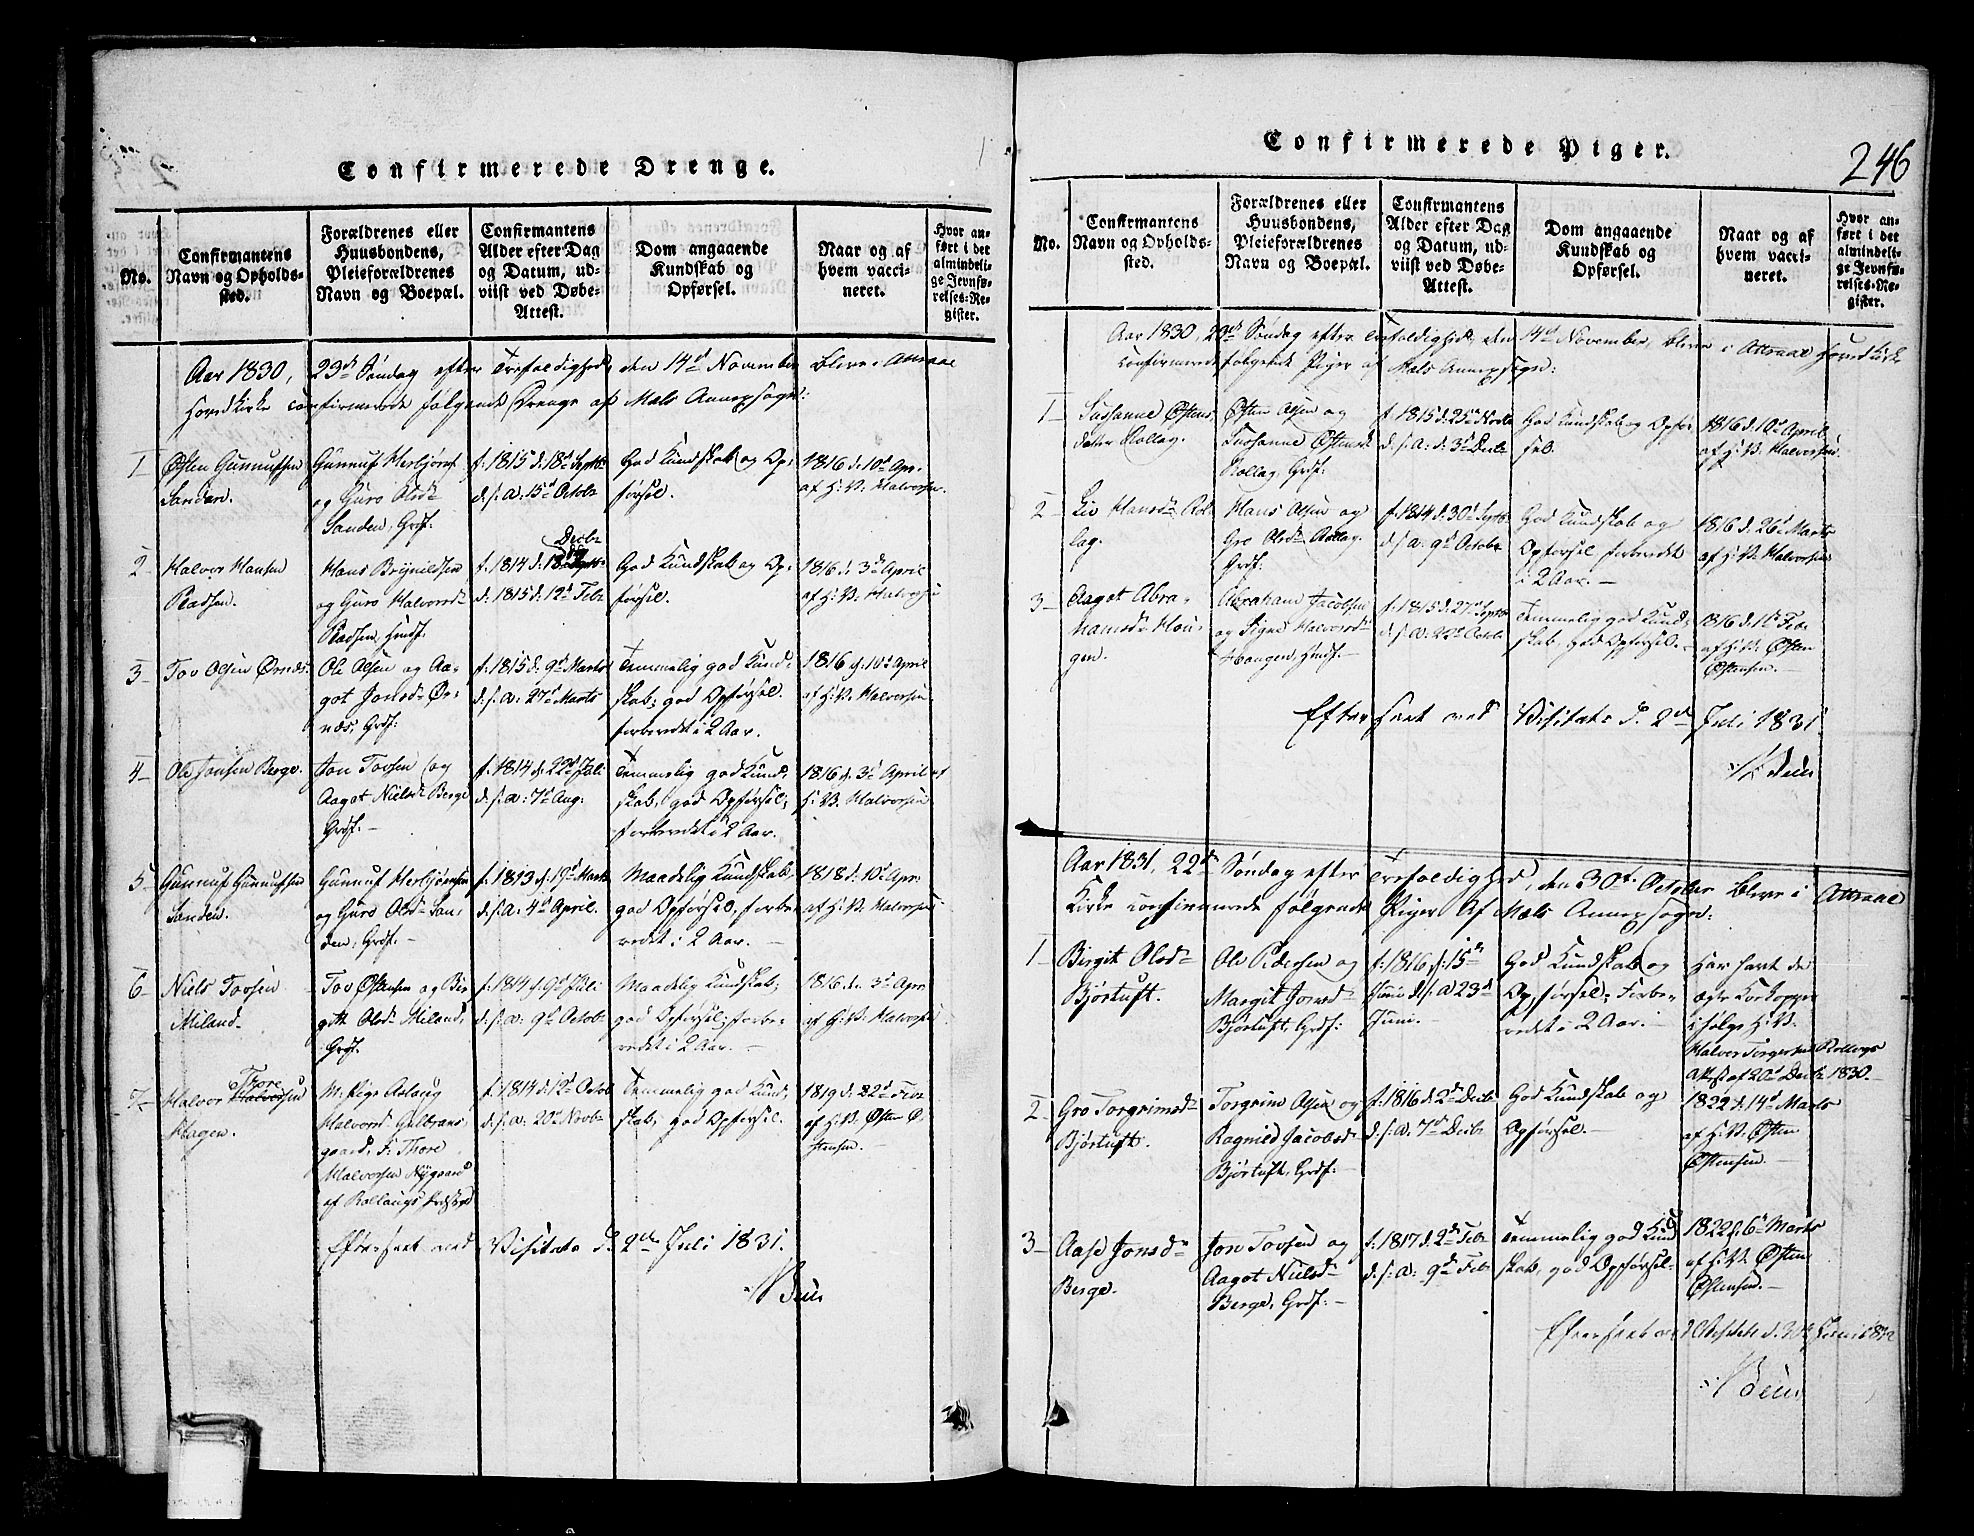 Confirmerede Drenge.
No.
Confirmantens
Navn og Opholds-
sted.
Forældrenes eller
Huusbondens,
Pleieforældrenes
Navn og Boepæl.
Confirmantens
Alder efter Dag
og Datum, ud-
viist ved Døbe-
Attest.
Dom angaaende
Kundskab og
Opførsel.
Naar og af
hvem vacci-
neret.
Hvor an-
ført i det
almindeli-
ge Jevnfø-
relses-Re-
gister.
Aar 1830, 23de Søndag efter Trefoldighed, den 14de November bleve i Attraae
Hovedkirke confirmerede følgende Drenge af Mæls Annexsogn:
1
Østen Gunnufsen
Sanden.
Gunnuf Herbjørns.
og Guro Olsd.
Sanden, Grdf.
f. 1815 d. 18d Septb.
d. s. a. 15d Octobr
God Kundskab og Op-
førsel.
1816 d. 10d Apr.
af H. V. Halvorsen.
2
Halvor Hansen
Hans Brynildsen
og Guro Halvorsd.
f. 1814 d. 18
Decbr
d. 1815 d. 12d Febr
God Kundskab og Op-
førsel.
1816 d. 3d April
af H. V. Halvorsen
3
Tov Olsen Ørnæs
Ole Olsen og Aa-
got Jonsd. Ør-
næs, Grdf:
f. 1815 d. 9d Marts
d. s. a. 27d Marts
Temmelig god Kund-
skab; god Opførsel.
forberedt i 2 Aar.
1816 d. 10d April
af H. V. Halvorsen
4
Ole Jonsen Berge.
Jon Tovsen og
Aagot Nielsd. Berge
Grdf. —
f. 1814 d. 22d Juli
d. s. a. 7d Aug.
Temmelig god Kund-
skab, god Opførsel;
forberedt i 2 Aar.
1816 d. 3d April af
H. V. Halvorsen
5
Gunnuf Gunnufsen
Sanden.
Gunnuf Herbjørnsen
og Guro Olsd. San-
den, Grdf. —
f. 1813 d. 19d Marts
d. s. a. 4d April.
Maadelig Kundskab,
god Opførsel, forbe-
redt i 2 Aar. —
1818 d. 10d Apr.
af H. V. Halvorsen
6
Niels Tovsen
Miland.
Tov Østensen og Bir-
git Olsd. Miland,
Grdf.
f. 1814 d. 9d Juli
d. s. a. 9d Octobr
Maadelig Kundskab;
god Opførsel; forbe-
redt i 2 Aar. —
1816 d. 3d Apr
af H. V. Halvorsen
7
Thore
Halvor Halvorsen
Hagen.
M: Pige Aslaug
Halvorsd. Gulbrans
gaard, F: Thore
Halvorsen Nygaard
af Rollaugs Præstegd
f. 1814 d. 12d Octob
d. s. a. 20d Novbr
Temmelig god Kund-
skab, god Opførsel.
1819 d. 22d Febr
af H. V. Østen Ø-
stensen.
Efterseet ved Visitats d. 2den Juli 1831.
Confirmerede Piger.
246
No.
Confirmantens
Navn og Opholds-
sted.
Forældrenes eller
Huusbondens,
Pleieforældrenes
Navn og Boepæl.
Confirmantens
Alder efter Dag
og Datum, ud-
viist ved Døbe-
Attest.
Dom angaaende
Kundskab og
Opførsel.
Naar og af
hvem vacci-
neret.
Hvor an-
ført i det
almindeli-
ge Jevnfø-
relses-Re-
gister.
Aar 1830, 23de Søndag efter Trefoldighed, den 14de November, bleve i Attraae Hovedkirke
confirmerede følgende Piger af Mæls Annexsogn:
1
Susanne Østens
datter Rollag.
Østen Olsen og
Susanne Østensd.
Rollag, Grdf.
f. 1815 d. 25d Novbr
d. s. a. d. 3d Decbr
God Kundskab og Opfør-
sel.
1816 d. 10d April
af H. V. Halvorsen
2
Liv Hansd. Rol-
lag.
Hans Olsen og
Gro Olsd. Rollag.
Grdf:
f. 1814 d. 30d Septb.
d. s. a. 9d Octobr
God Kundskab og
Opførsel forberedt
i 2 Aar. —
1816 d. 26d Marts
af H. V. Halvorsen
3
Aagot Abra-
hamsd. Hau-
gen.
Abraham Jacobsen
og Signe Halvorsd.
Haugen, Huusf. —
f. 1815 d. 27d Septbr
d. s. a. 22d Octobr
Temmelig god Kund-
skab, god Opførsel. —
1816 d. 16d Febr
af H. V. Østen
Østensen. —
Efterseet ved Visitats d. 2d Juli 1831.
Aar 1831, 22de Søndag efter Trefoldighed, den 30te October bleve i Attraae
Kirke confirmerede følgende Piger af Mæls Annexsogn:
1
Birgit Olsd.
Bjørtuft.
Ole Pedersen og
Margit Jonsd.
Bjørtuft, Grdf:
f. 1816 d. 15d
Juni d. s. a 23d
Juni. —
God Kundskab og
Opførsel. Forbe-
redt i 2 Aar. —
Har havt de
ægte Kokopper
ifølge H. V.
Halvor Torgersen Rollags
Attest af 20d Decbr 1830. —
2
Gro Torgrimsd.
Bjørtuft.
Torgrim Olsen og
Ragnild Jacobsd.
Bjørtuft, Grdf: —
f. 1816 d. 2d Decbr
d. s. a. 7d Decbr
God Kundskab og
Opførsel. —
1822 d. 14d Marts
af H. V. Østen
Østensen. —
3
Aase Jonsd.
Berge.
Jon Tovsen og
Aagot Nielsd.
Berge, Grdf: —
f. 1817 d. 2d Febr
d. s. a. 9d Febr
Temmelig god Kund-
skab, god Opførsel. —
1822 d. 6d Marts
af H. V. Østen
Østensen. —
Efterseet ved Visitats d. 30d Juni 1832